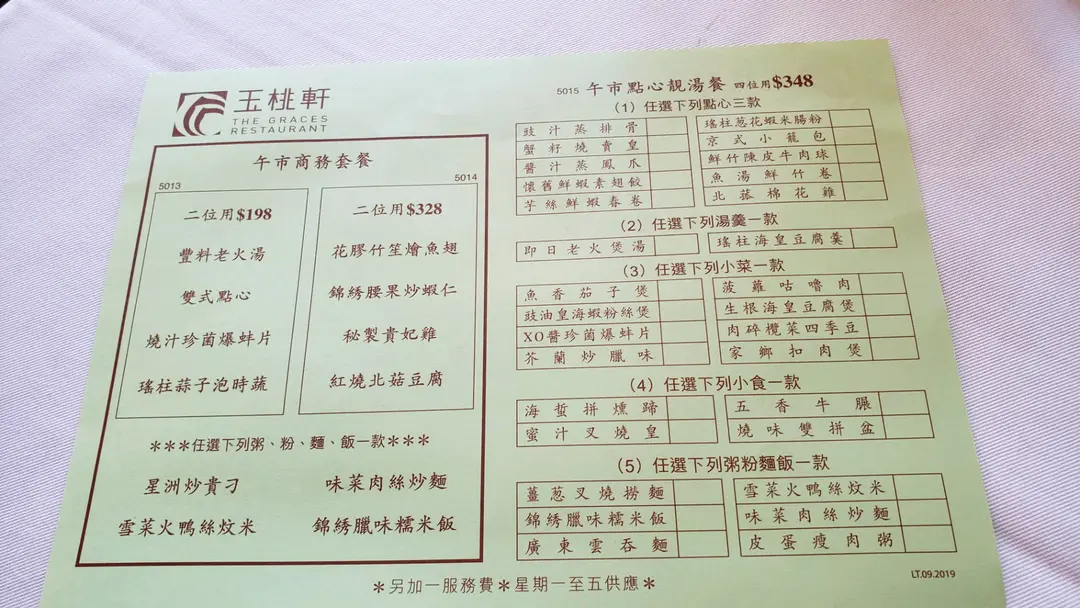 玉桃軒
THE GRACES
RESTAURANT
午市商務套餐
5013
二位用$198
豐料老火湯
雙式點心
燒汁珍菌爆蚌片
瑤柱蒜子泡時蔬
5014
二位用$328
花膠竹笙燴魚翅
錦綉腰果炒蝦仁
秘製貴妃雞
紅燒北菇豆腐
＊＊＊任選下列粥、粉、麵、飯一款＊＊＊
星洲炒貴刁
味菜肉絲炒麵
雪菜火鴨絲炆米
錦綉臘味糯米飯
5015 午市點心靚湯餐 四位用$348
(1) 任選下列點心三款
豉汁蒸排骨
蟹籽燒賣皇
醬汁蒸鳳爪
懷舊鮮蝦素翅餃
芋絲鮮蝦春卷
瑤柱葱花蝦米腸粉
京式小籠包
鮮竹陳皮牛肉球
魚湯鮮竹卷
北菇棉花雞
(2) 任選下列湯羹一款
即日老火煲湯
瑤柱海皇豆腐羹
(3) 任選下列小菜一款
魚香茄子煲
豉油皇海蝦粉絲煲
XO醬珍菌爆蚌片
芥蘭炒臘味
菠蘿咕嚕肉
生根海皇豆腐煲
肉碎欖菜四季豆
家鄉扣肉煲
(4) 任選下列小食一款
海蜇拼燻蹄
蜜汁叉燒皇
五香牛𦟌
燒味雙拼盆
(5) 任選下列粥粉麵飯一款
薑葱叉燒撈麵
錦綉臘味糯米飯
廣東雲吞麵
雪菜火鴨絲炆米
味菜肉絲炒麵
皮蛋瘦肉粥
＊另加一服務費＊星期一至五供應＊
LT.09.2019